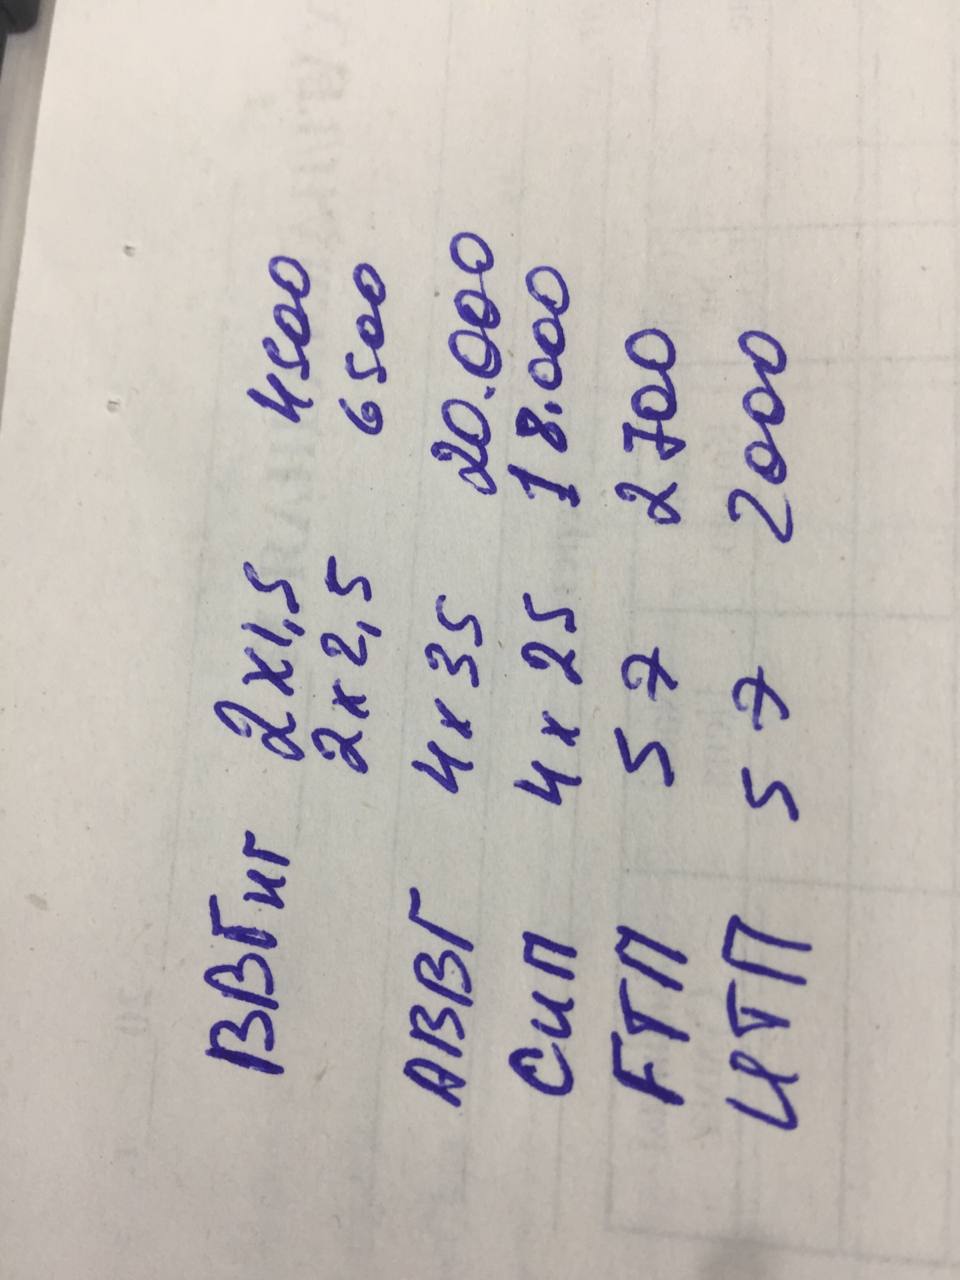 ВВГнг 2х1,5 4500
2х2,5 6500
АВВГ 4х35 20.000
Сип 4х25 18.000
FТП 57 2700
ИТП 57 2000